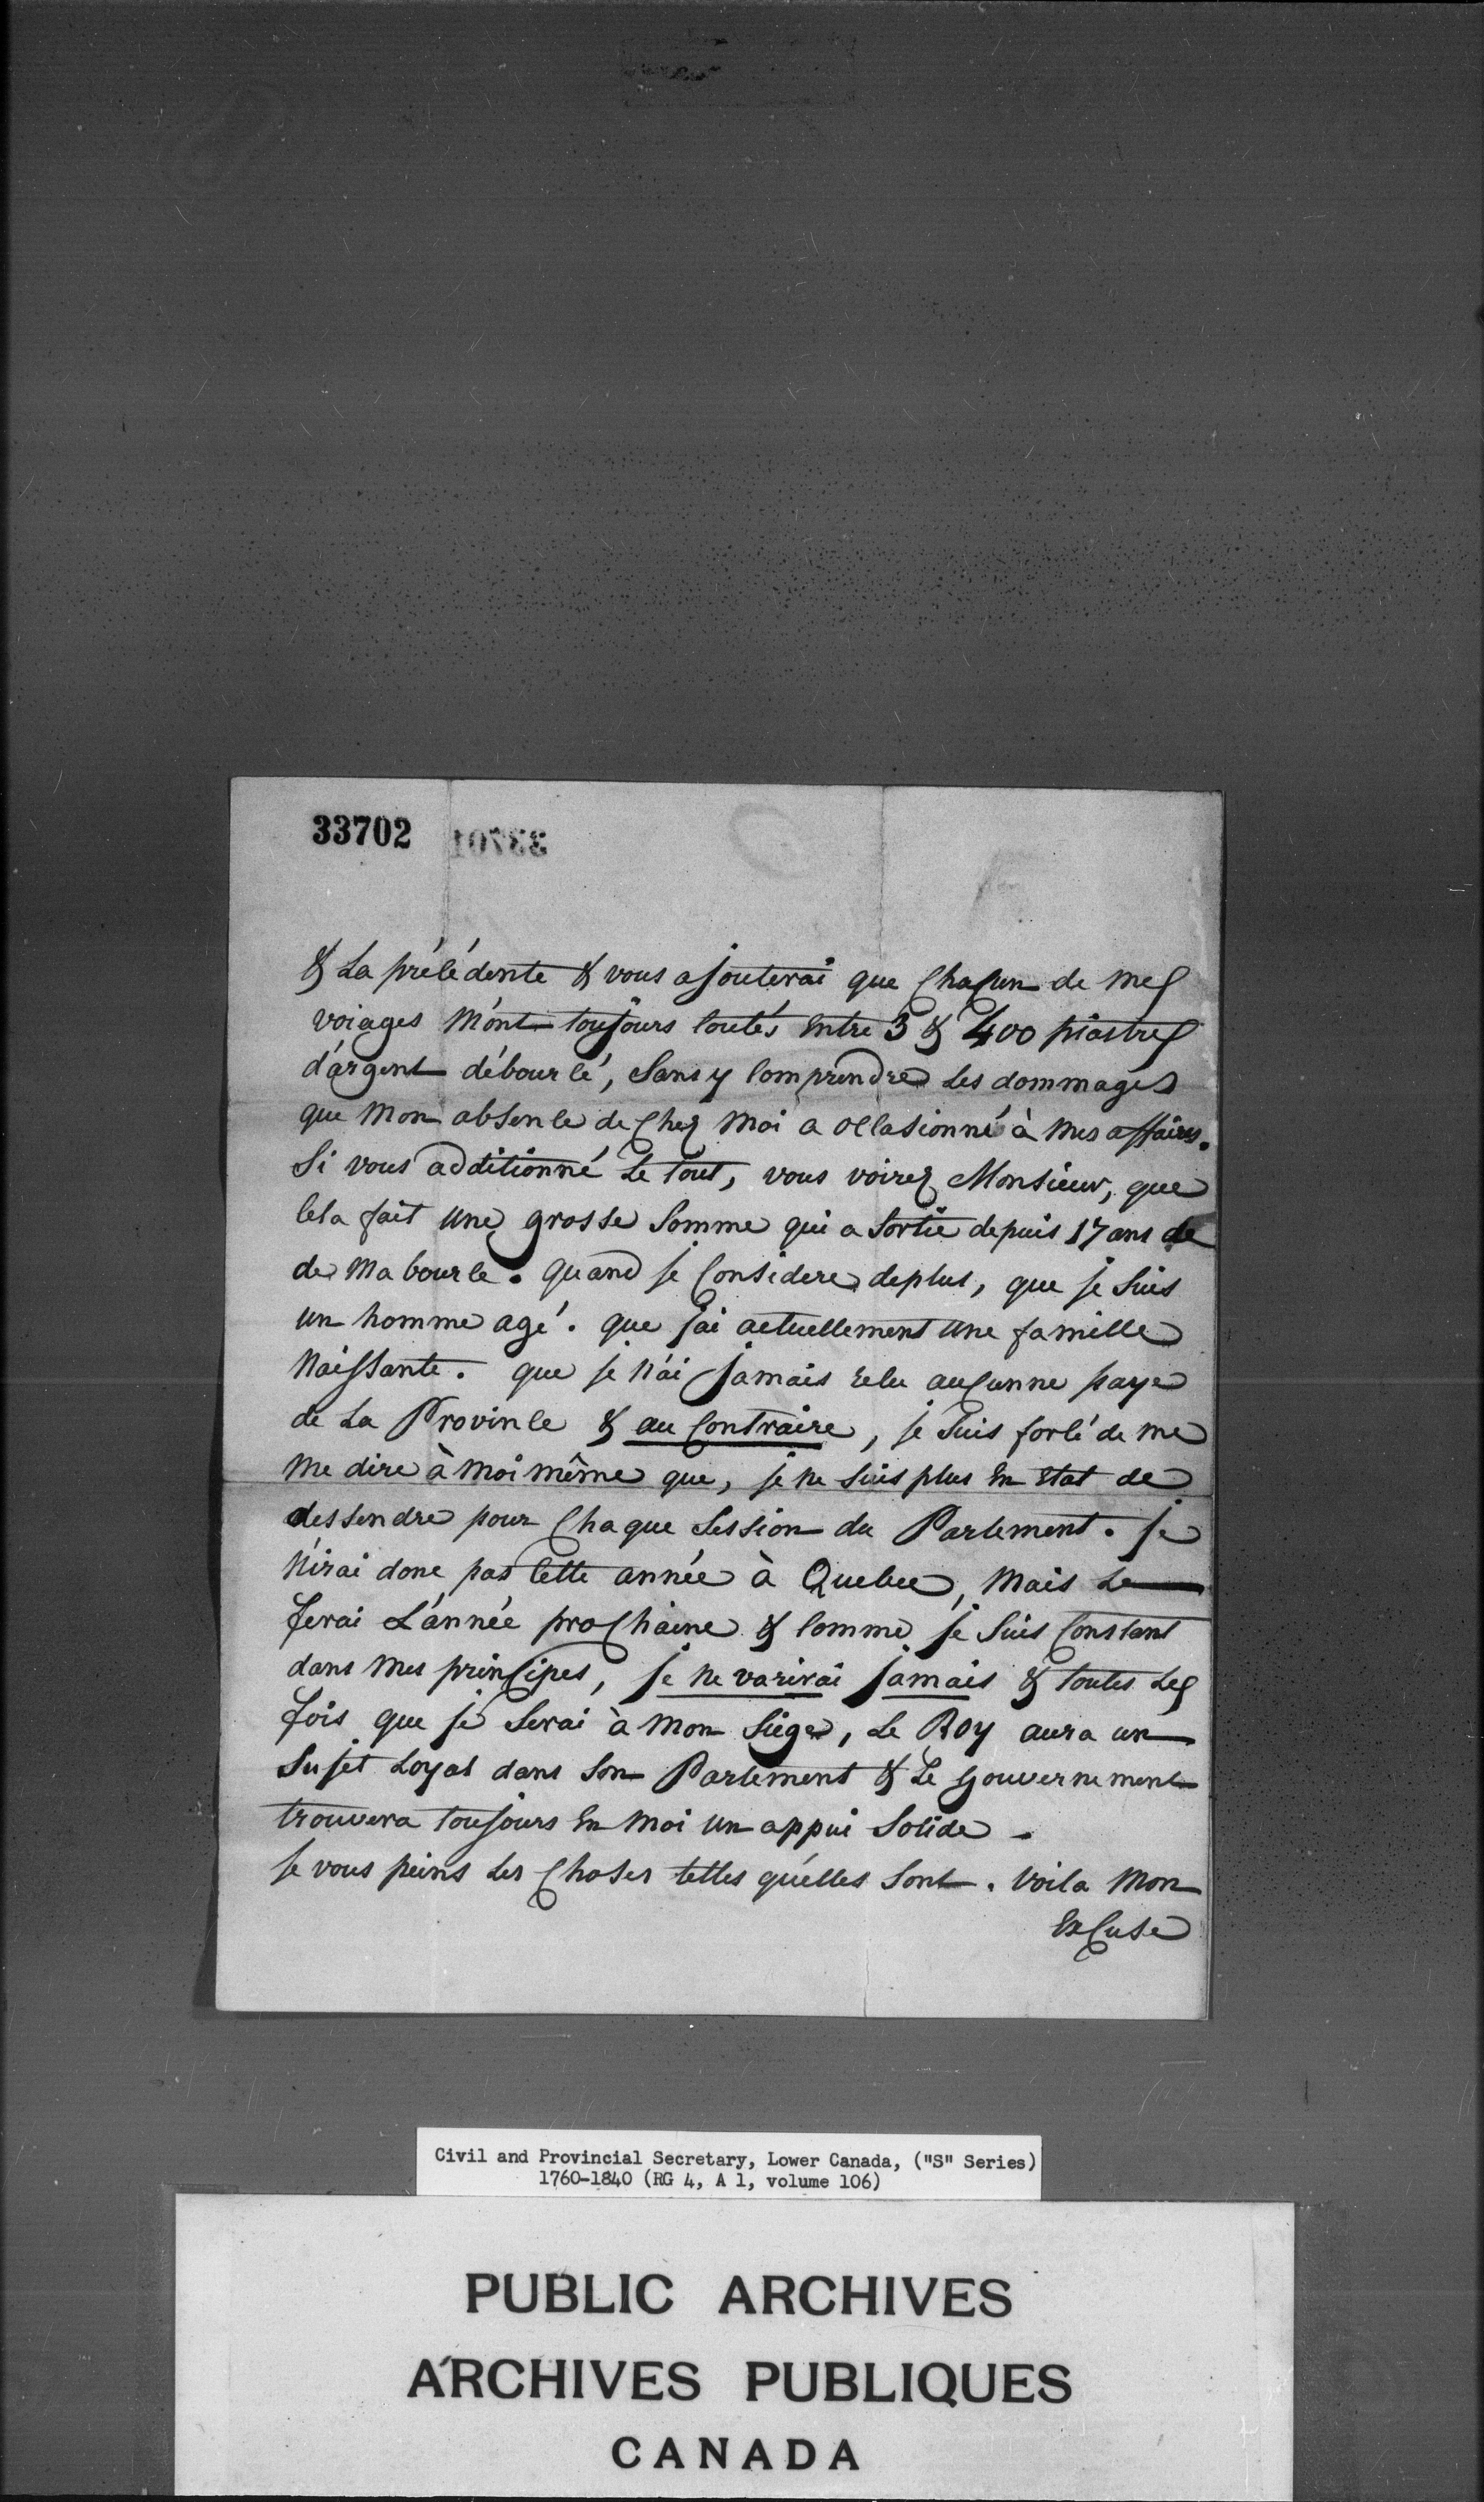 33702 33701
& La précédente & vous ajouterai que Chacun de mes
voiages m'ont toujours coutés entre 3 & 400 piastres
d'argent débourcé, Sans y comprendre les dommages
que mon absence de Chez moi a occasionné à mes affaires.
Si vous additionné le tout, vous voirez Monsieur, que
cela fait une grosse Somme qui a Sortie depuis 17 ans de
de ma bource. quand je Considere deplus, que je Suis
un homme agé. que j'ai actuellement une famille
naissante. que je n'ai jamais recu aucunne paye
de La Province & au Contraire, je Suis forcé de me
me dire à moi même que, je ne Suis plus en etat de
dessendre pour Chaque Session du Parlement. je
n'irai donc pas cette année à Quebec, mais Le
ferai L'année proChaine & comme je Suis Constant
dans mes prinCipes, je ne varirai jamais & toutes Les
fois que je Serai à mon Siége, Le Roy aura un
Sujet Loyal dans Son Parlement & Le Gouvernement
trouvera toujours en moi un appui Solide.
Je vous peins Les Choses telles qu'elles Sont. Voila mon
exCuse
Civil and Provincial Secretary, Lower Canada, ("S" Series)
1760-1840 (RG 4, A 1, volume 106)
PUBLIC ARCHIVES
ARCHIVES PUBLIQUES
CANADA